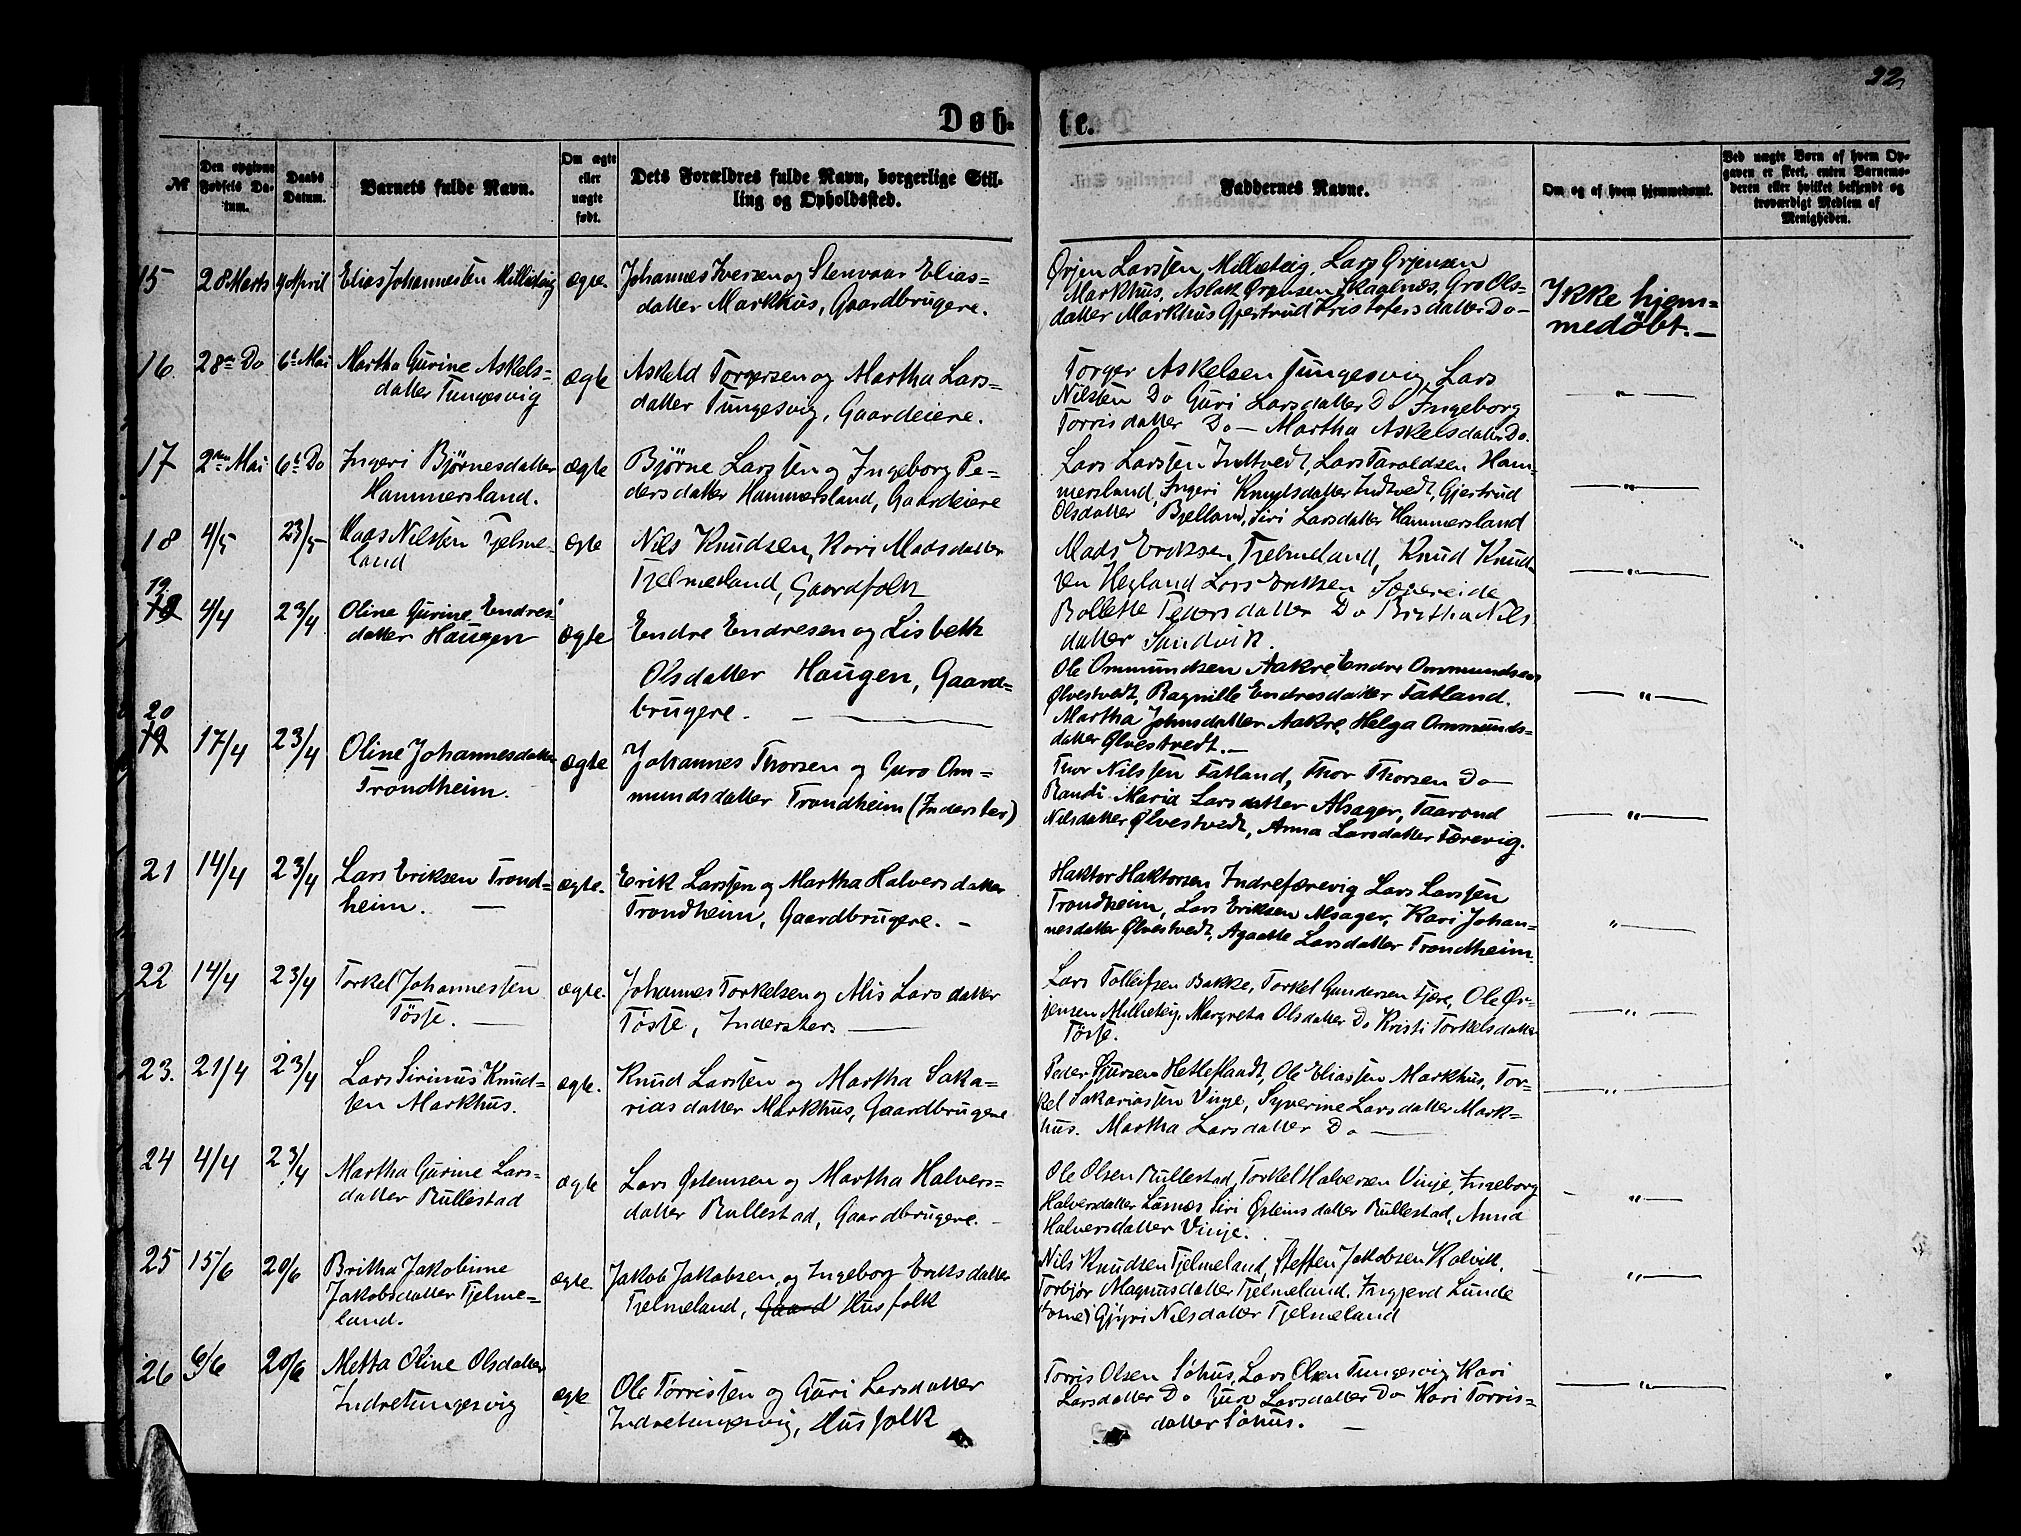 22.
Døb- te.
№
Den opgivne Fødsels Datum.
Daabs Datum.
Barnets fulde Navn.
Om ægte eller uægte født.
Dets Forældres fulde Navn, borgerlige Stilling og Opholdssted.
Faddernes Navne.
Om og af hvem hjemmedøbt.
Ved uægte Børn af hvem Opgaven er skeet, enten Barnemoderen eller hvilket bekjendt og troværdigt Medlem af Menigheden.
15 28 Marts April Elias Johannessen Milliteig ægte.
Johannes Iversen og Stenvaar Elias-
datter Markhus, Gaardbrugere.
Ørjen Larssen Milleteig, Lars Ørjensen
Markhus, Aslak Ørjensen Skaalnæs, Gro Ols-
datter Markhus Gjertrud Kristofersdatter Do –
Ikke hjem-
medøbt. –
16. 28de Do 6te Mai Martha Gurine Askels-
datter Tungesvig
ægte
Askeld Torgersen og Martha Lars-
datter Tungesvig, Gaardeiere.
Torger Askelsen Tungesvig, Lars
Nilssen Do Guri Larsdatter Do Ingeborg
Torrisdatter Do – Martha Askelsdatter Do.
— " —
17 2den Mai 6te Do Ingeri Bjørnesdatter
Hammersland.
ægte
Bjørne Larssen og Ingeborg Pe-
dersdatter Hammersland, Gaardeiere
Lars Larssen Indtvedt, Lars Taraldsen Ham-
mersland, Ingeri Knutsdatter Indtvedt, Gjertrud
Olsdatter Bjelland, Siri Larsdatter Hammersland
— " —
18 4/5 23/5 Nilssen Tjelme-
land
ægte
Nils Knudsen, Kari Madsdatter
Tjelmeland, Gaardfolk
Mads Eriksen Tjelmeland, Knud Knud-
sen Hegland Lars Eriksen Sævereide
Bollette Pedersdatter Do Britha Nils
datter Sandvik.
— " —
19.
4/4 23/4 Oline Gurine Endres-
datter Haugen
ægte
Endre Endresen og Lisbeth
Olsdatter Haugen, Gaard-
brugere. –
Ole Ommundsen Aakre Endre Ommundsen
Ølvestvedt, Ragnille Endresdatter Fatland.
Martha Johnsdatter Aakre, Helga Ommunds-
datter Ølvestvedt. –
— " —
20
19 17/4 23/4 Oline Johannesdatter
Trondheim.
ægte
Johannes Thorsen og Guro Om-
mundsdatter Trondheim (Inderster)
Thor Nilssen Fatland, Thor Thorsen Do –
Randi Maria Larsdatter Alsager, Taarond
Nilsdatter Ølvestvedt, Anna Larsdatter Færevig.
— " —
21 14/4 23/4 Lars Eriksen Trond-
heim. –
ægte.
Erik Larssen og Martha Halversdatter
Trondheim, Gaardbrugere. –
Haktor Haktorsen Indrefærevig Lars Larssen
Trondheim, Lars Eriksen Alsager, Kari Johan-
nesdatter Ølvestvedt, Agaatte Larsdatter Trondheim.
" —
22 14/4 23/4 Torkel Johannessen
Tösse. –
ægte.
Johannes Torkelsen og Alis Larsdatter
Tösse, Indersters –
Lars Tolleifsen Bakke, Torkel Gundersen Fjære, Ole Ør-
jensen Milleteig. Margreta Olsdatter Do Kristi Torkelsdatter
Tösse.
— " —
23. 21/4 23/4 Lars Sirinus Knud-
sen Markhus.
ægte.
Knud Larssen og Martha Saka-
riasdatter Markhus, Gaardbrugere
Peder Sjursen Hetleflaadt, Ole Eliassen Markhus, Tor-
kel Sakariassen Vinje, Syverine Larsdatter Mark-
hus. Martha Larsdatter Do —
— " —
24 4/4 23/4 Martha Gurine Lars-
datter Rullestad
ægte
Lars Østensen og Martha Halvers-
datter Rullestad, Gaardbrugere. –
Ole Olsen Rullestad, Torkel Halversen Vinje, Ingeborg
Halversdatter Lusnæs Siri Østeinsdatter Rullestad, Anna
Halversdatter Vinje.
– " —
25 15/6 20/6 Britha Jakobine
Jakobsdatter Tjelme-
land.
ægte.
Jakob Jakobsen, og Ingeborg Eriksdatter
Tjelmeland, Gaard Husfolk
Nils Knudsen Tjelmeland, Steffen Jakobsen Kalvik.
Torbjør Magnusdatter Tjelmeland. Ingjerd Lunde
Nilsdatter Tjelmeland
– " —
26 6/6 20/6 Metta Oline Olsdatter
Indretungesvig
ægte
Ole Torrissen og Guri Larsdatter
Indretungesvig, Husfolk
Torris Olsen Söhus, Lars Olsen Tungesvig Kari
Larsdatter Do Larsdatter Do Kari Torris-
datter Söhus. –
— " —